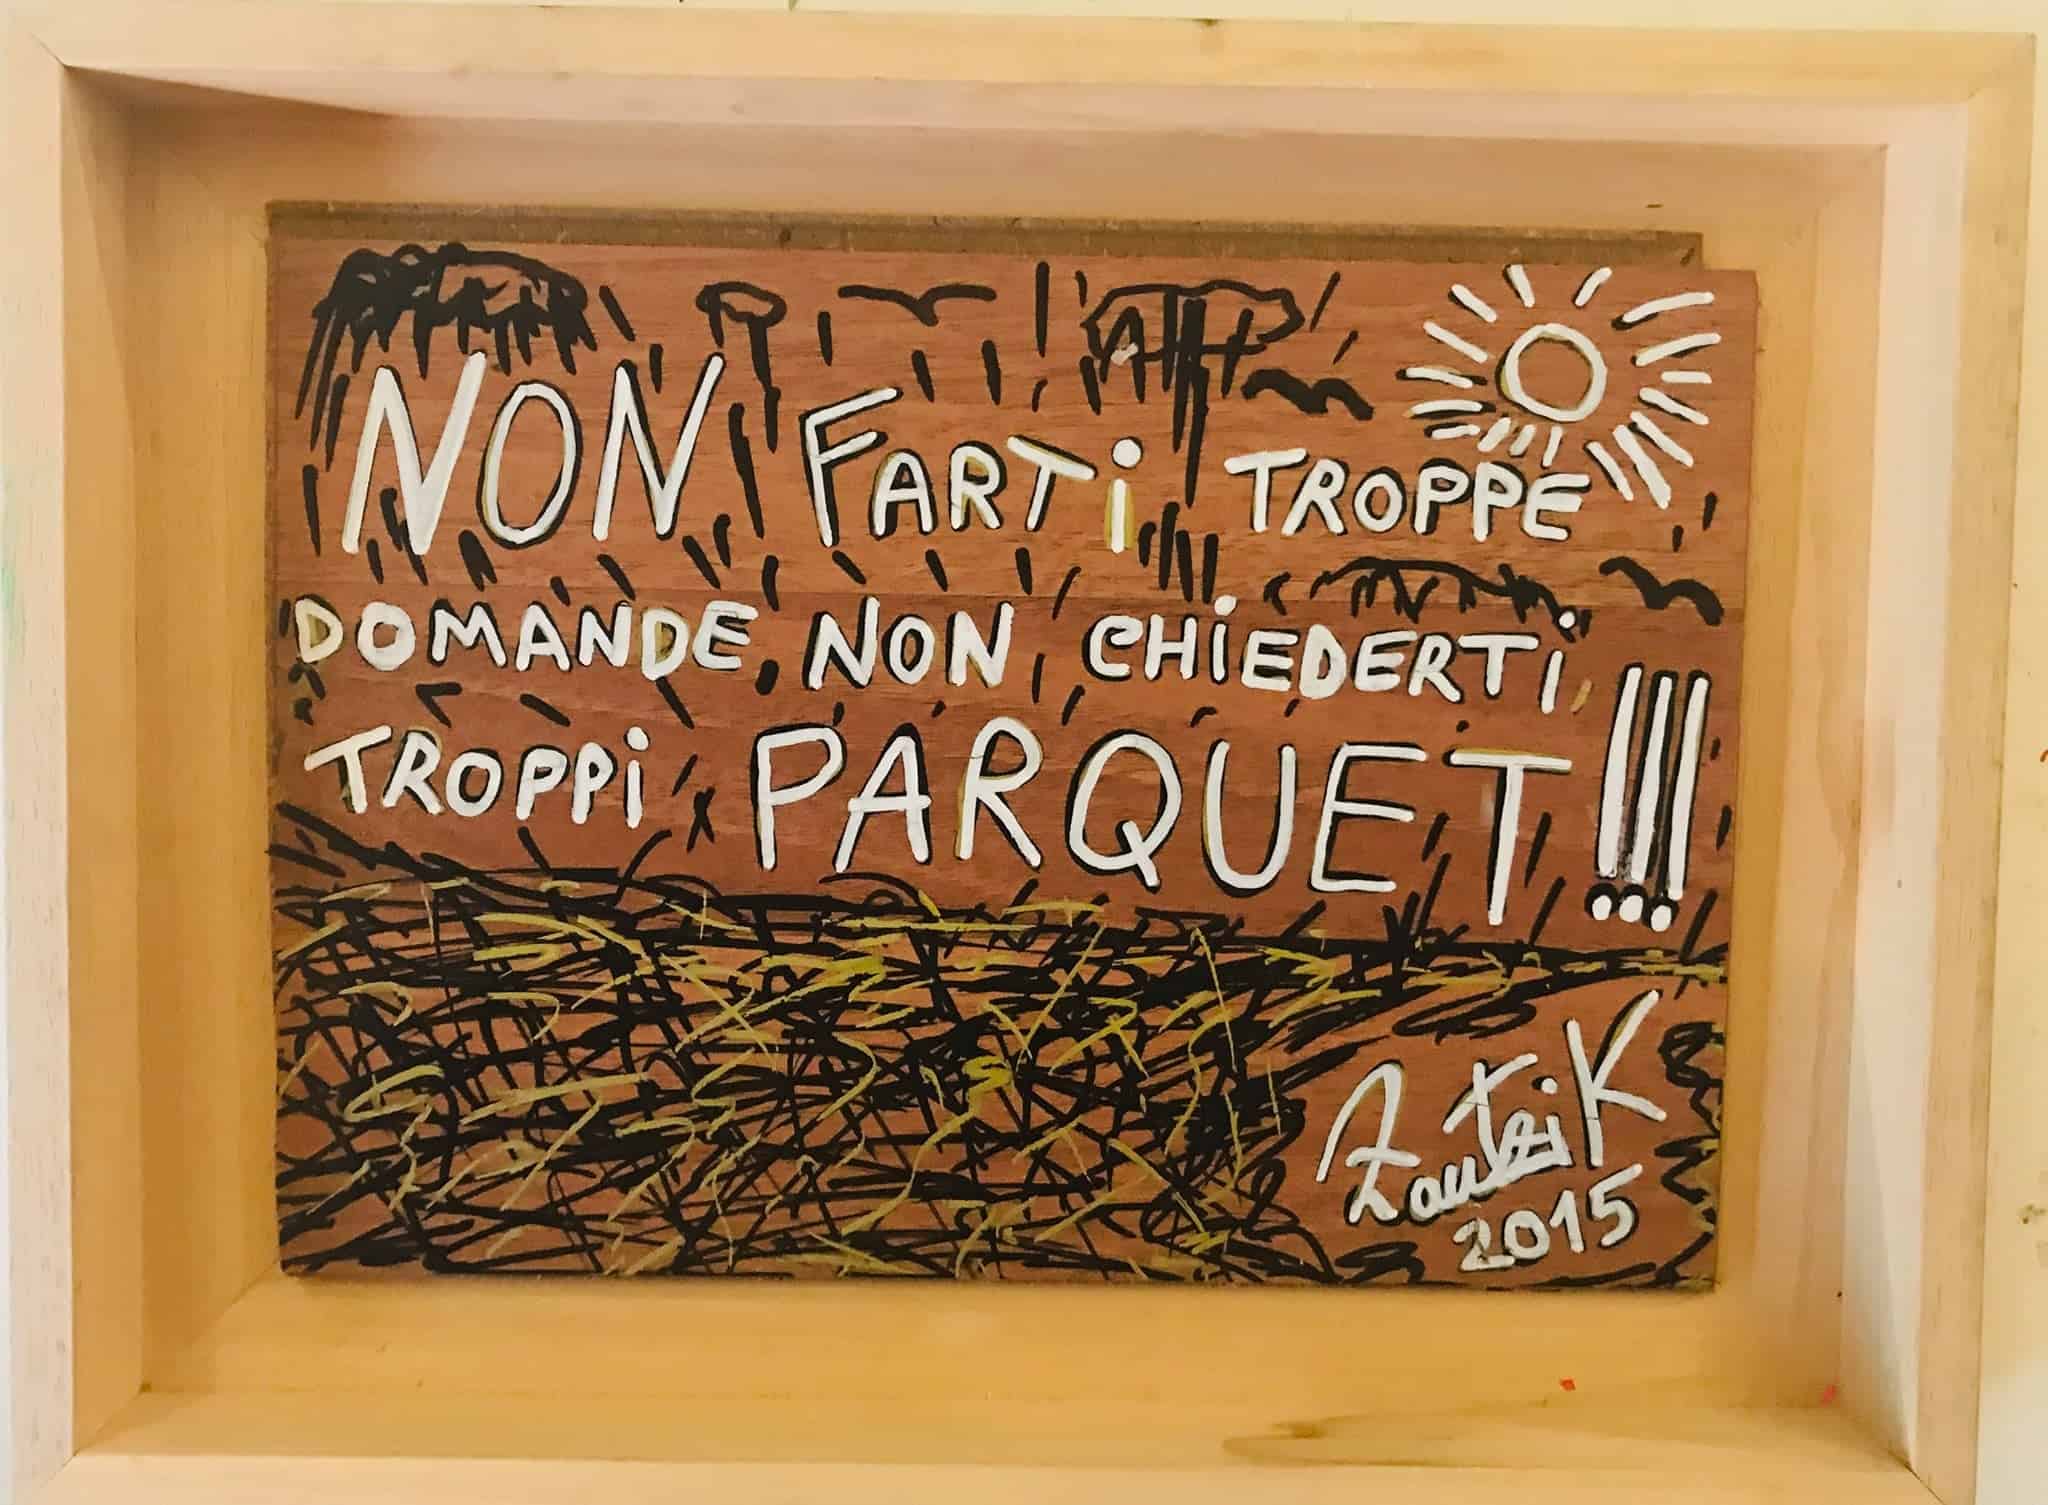 NON FARTi TROPPE
DOMANDE NON CHiEDERTi
TROPPi PARQUET!!!
ZoutziK
2015